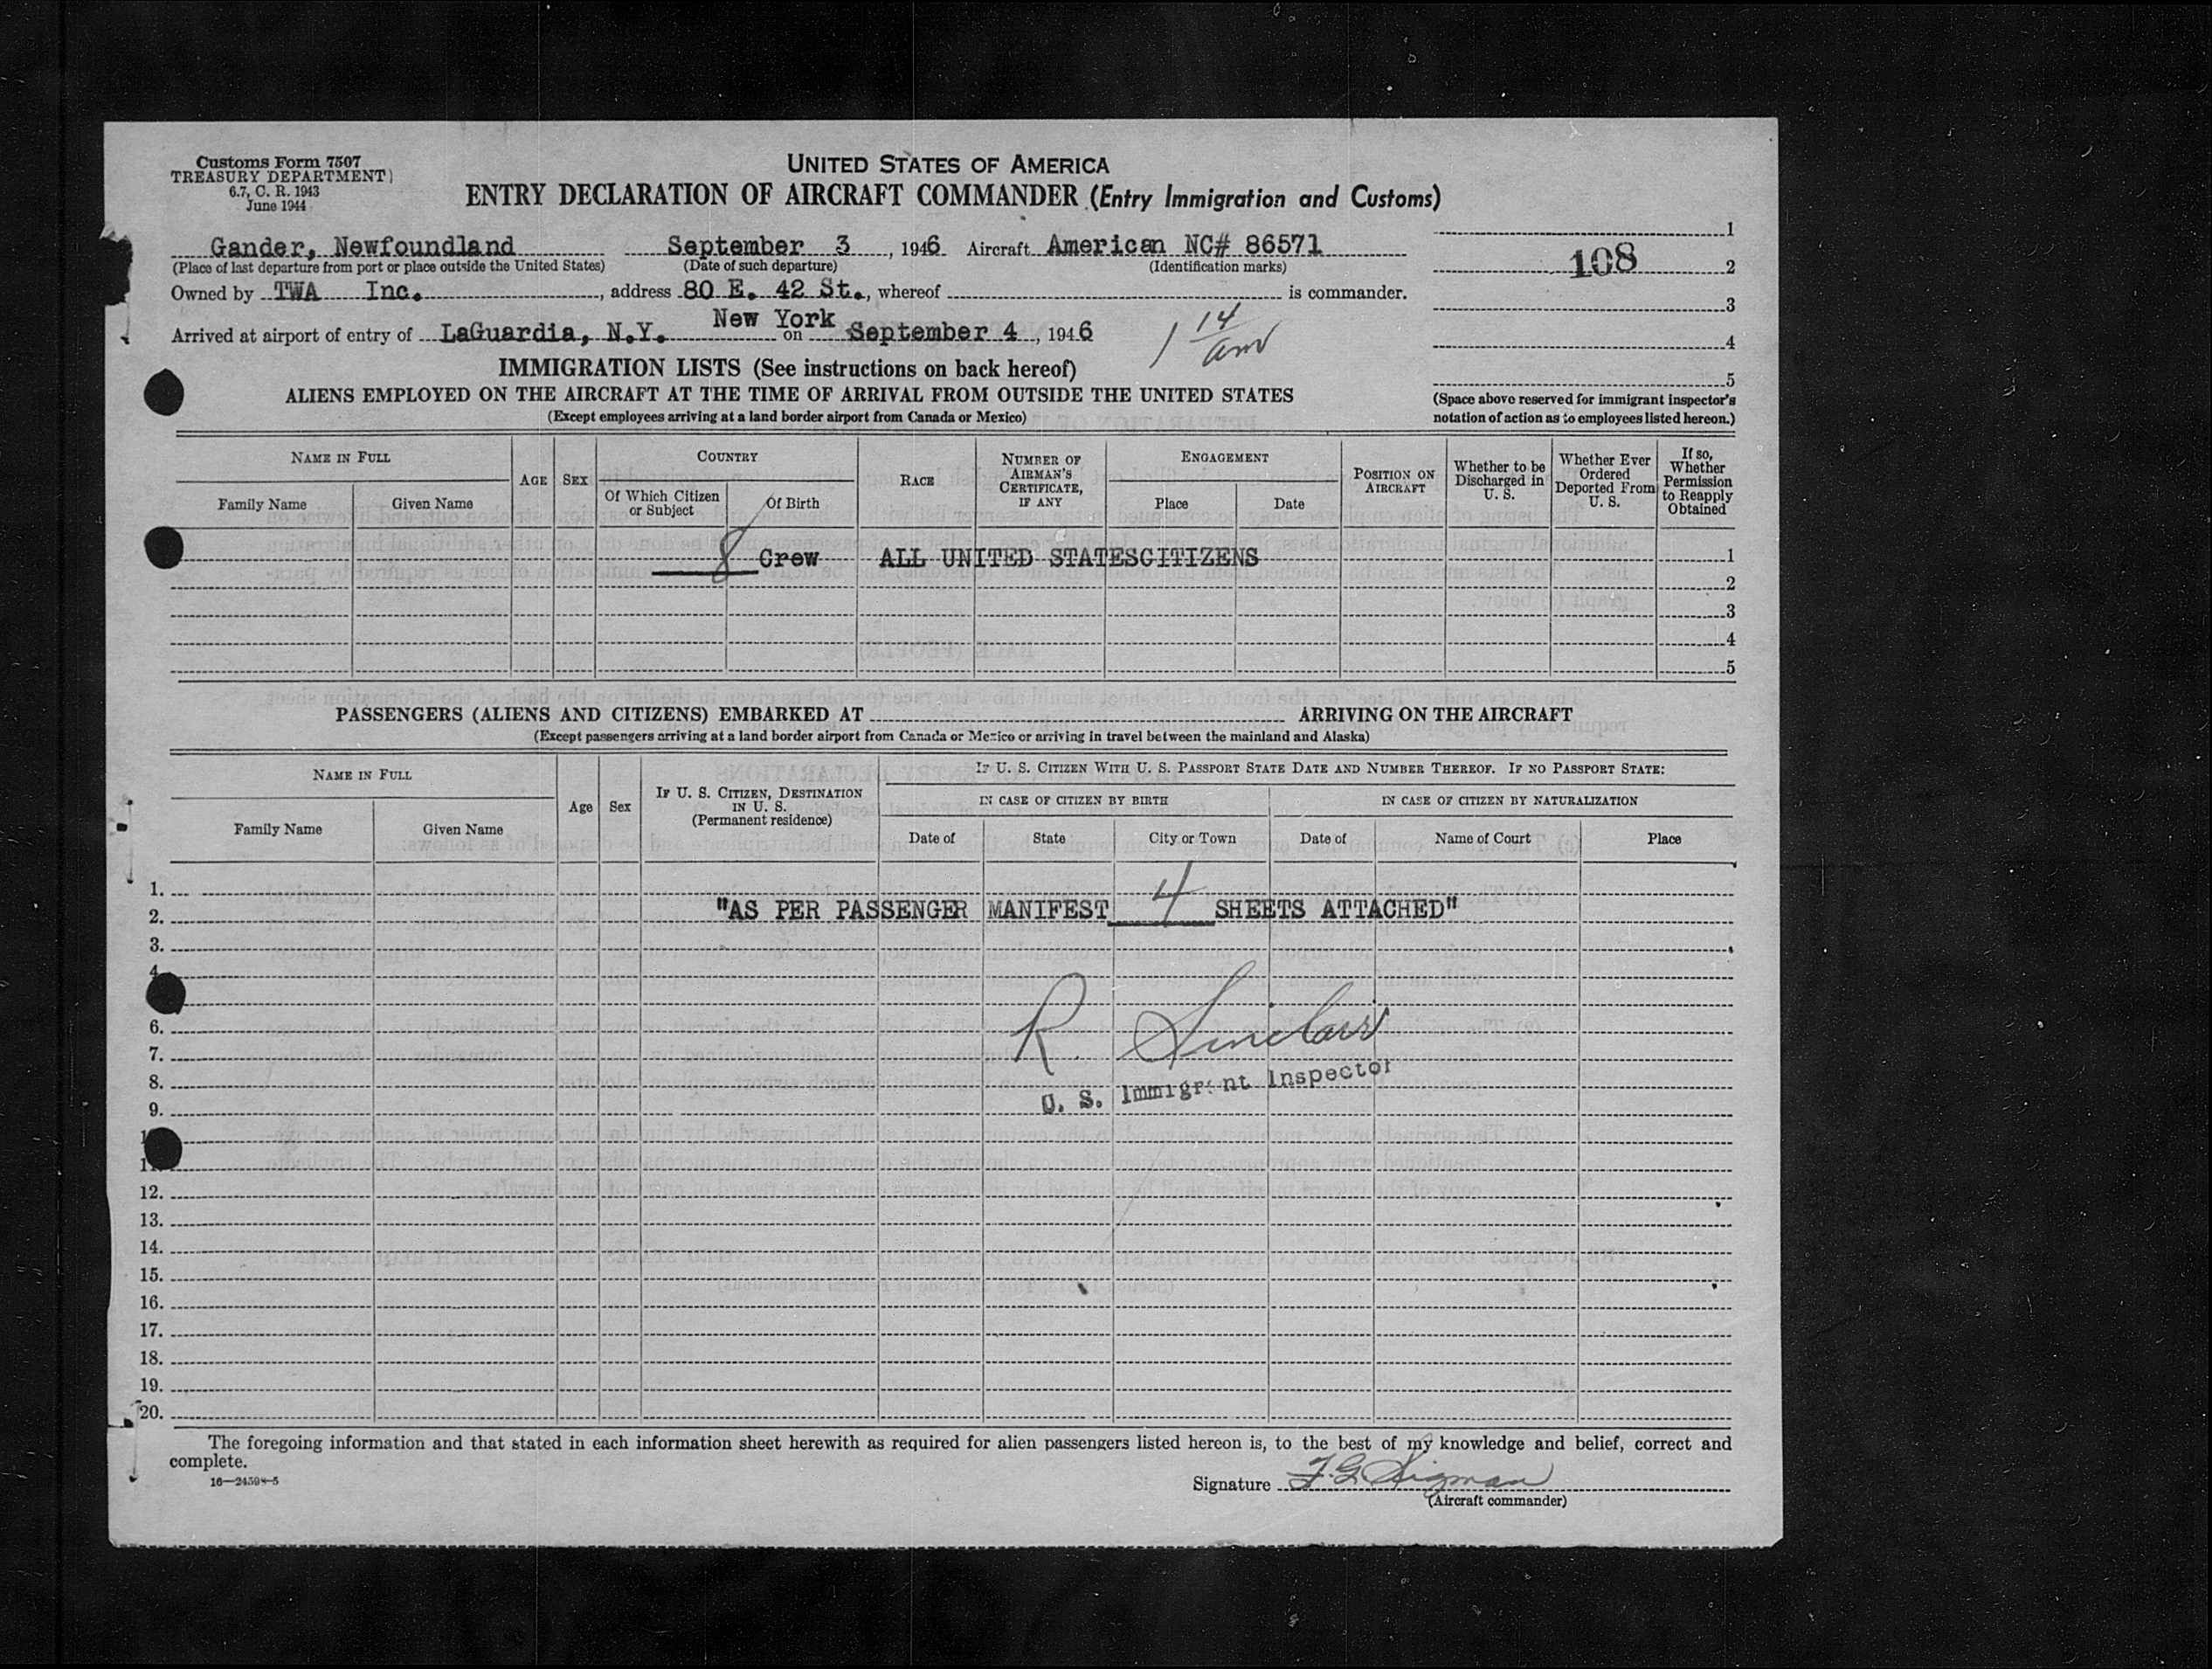 Customs Form 7507
TREASURY DEPARTMENT
6.7, C. R. 1943
June 1944
UNITED STATES OF AMERICA
ENTRY DECLARATION OF AIRCRAFT COMMANDER (Entry Immigration and Customs)
Gander, Newfoundland September 3, 1946 Aircraft American NC# 86571
(Place of last departure from port or place outside the United States) (Date of such departure) (Identification marks)
Owned by TWA Inc., address 80 E. 42 St., whereof is commander.
New York
Arrived at airport of entry of LaGuardia, N.Y. on September 4, 1946
1 14 am
1
108
2
3
4
5
(Space above reserved for immigrant inspector's
notation of action as to employees listed hereon.)
IMMIGRATION LISTS (See instructions on back hereof)
ALIENS EMPLOYED ON THE AIRCRAFT AT THE TIME OF ARRIVAL FROM OUTSIDE THE UNITED STATES
(Except employees arriving at a land border airport from Canada or Mexico)
NAME IN FULL
Family Name Given Name
AGE SEX
COUNTRY
Of Which Citizen or Subject
Of Birth
RACE
NUMBER OF AIRMAN'S CERTIFICATE, IF ANY
ENGAGEMENT
Place Date
POSITION ON AIRCRAFT
Whether to be Discharged in U. S.
Whether Ever Ordered Deported From U. S.
If so, Whether Permission to Reapply Obtained
8 Crew ALL UNITED STATESCITIZENS 1
2
3
4
5
PASSENGERS (ALIENS AND CITIZENS) EMBARKED AT ARRIVING ON THE AIRCRAFT
(Except passengers arriving at a land border airport from Canada or Mexico or arriving in travel between the mainland and Alaska)
NAME IN FULL
Family Name Given Name
Age Sex
IF U. S. CITIZEN, DESTINATION IN U. S.
(Permanent residence)
IF U. S. CITIZEN WITH U. S. PASSPORT STATE DATE AND NUMBER THEREOF. IF NO PASSPORT STATE:
IN CASE OF CITIZEN BY BIRTH IN CASE OF CITIZEN BY NATURALIZATION
Date of State City or Town Date of Name of Court Place
1.
2. "AS PER PASSENGER MANIFEST 4 SHEETS ATTACHED"
3.
4
6.
R. Sinclair
7.
8.
U. S. Immigrant Inspector
9.
12.
13.
14.
15.
16.
17.
18.
19.
20.
The foregoing information and that stated in each information sheet herewith as required for alien passengers listed hereon is, to the best of my knowledge and belief, correct and
complete.
Signature F. G. Sigman
(Aircraft commander)